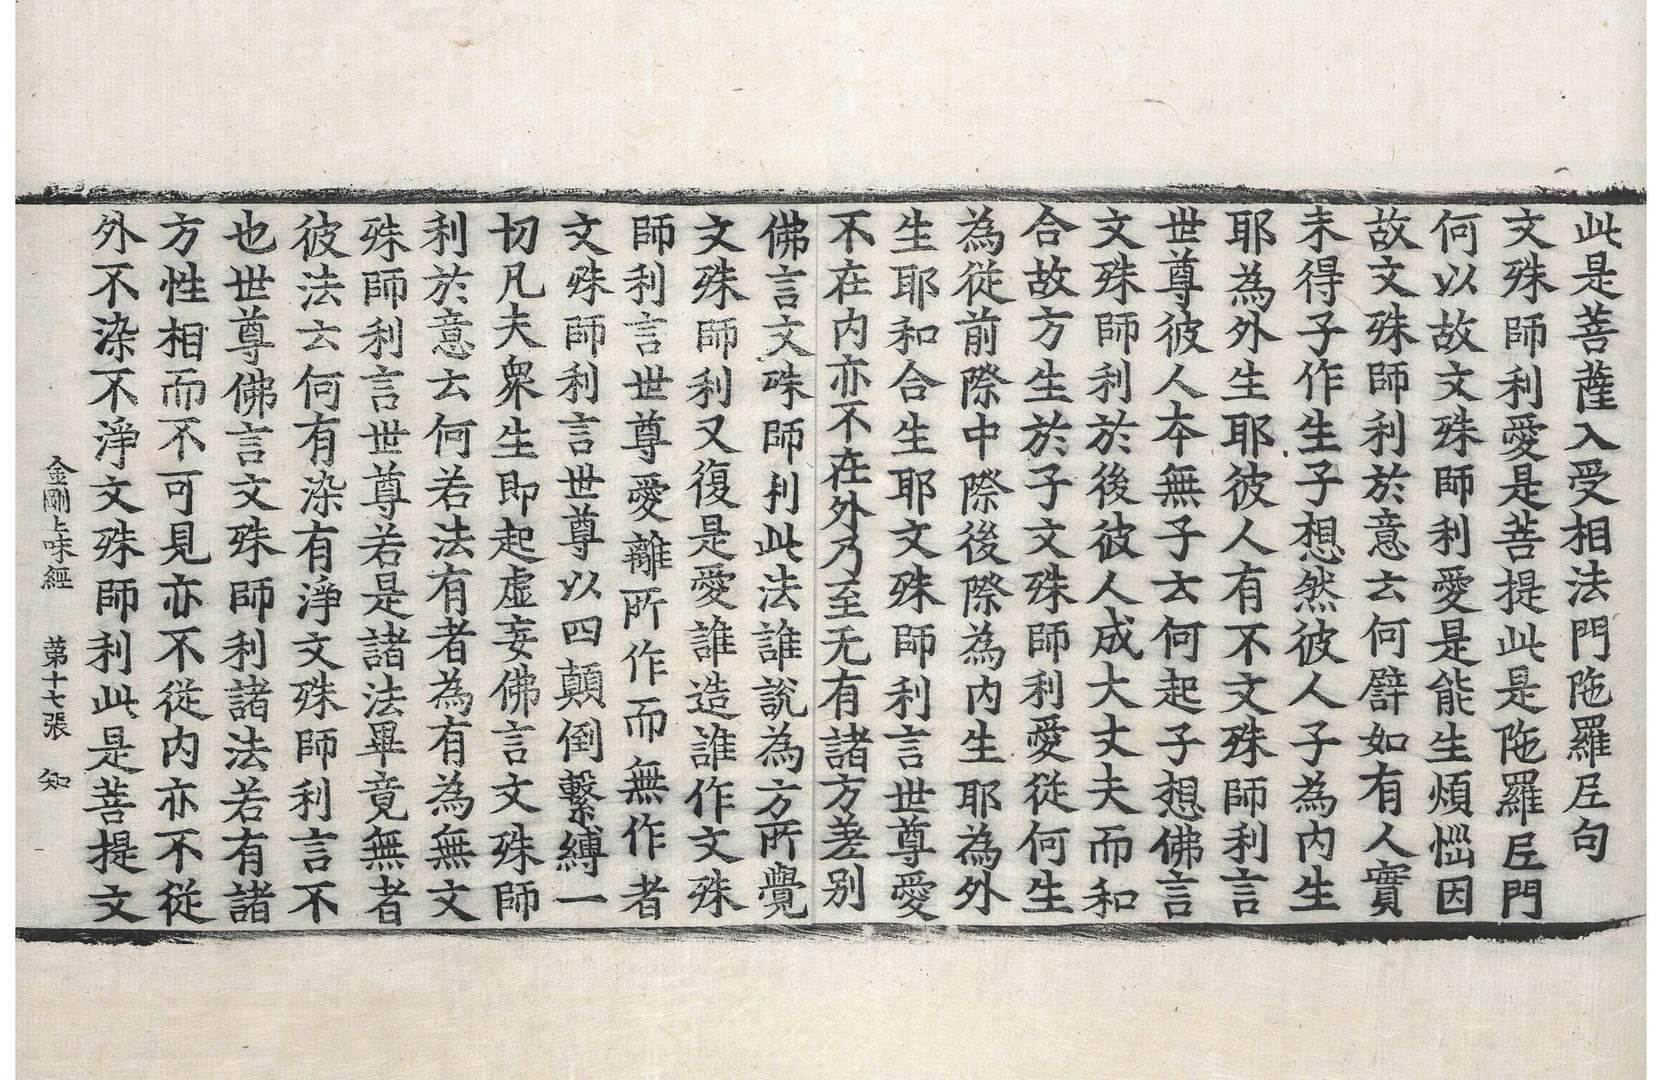 此是菩薩入受相法門陁羅𡰱句
文殊師利愛是菩提此是陁羅𡰱門
何以故文殊師利愛是能生煩惱因
故文殊師利於意云何譬如有人實
未得子作生子想然彼人子為内生
耶為外生耶彼人有不文殊師利言
世尊彼人本無子云何起子想佛言
文殊師利於後彼人成大丈夫而和
合故方生於子文殊師利愛從何生
為從前際中際後際為内生耶為外
生耶和合生耶文殊師利言世尊愛
不在内亦不在外乃至无有諸方差別
佛言文殊師利此法誰說為方所覺
文殊師利又復是愛誰造誰作文殊
師利言世尊愛離所作而無作者
文殊師利言世尊以四顛倒繫縛一
切凡夫衆生即起虛妄佛言文殊師
利於意云何若法有者為有為無文
殊師利言世尊若是諸法畢竟無者
彼法云何有染有淨文殊師利言不
也世尊佛言文殊師利諸法若有諸
方性相而不可見亦不從内亦不從
外不染不淨文殊師利此是菩提文
金剛上味經 第十七張 知